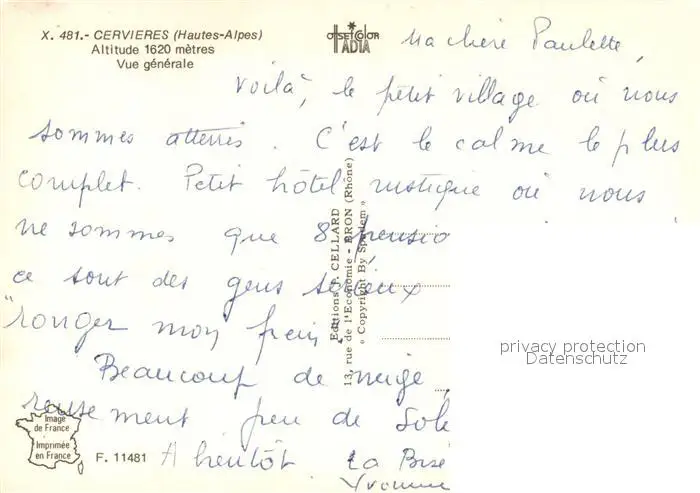 X. 481.- CERVIERES (Hautes-Alpes)
Altitude 1620 mètres
Vue générale
OFFSETCOLOR
IADIA
Ma chère Paulette,
Voilà, le petit village où nous
sommes atterris. C'est le calme le plus
complet. Petit hôtel rustique où nous
ne sommes que 8 pensio
ce sont des gens
"ronger mon frein
Beaucoup de neige
ment peu de Sole
A bientôt La Bise
Yvonne
Editions F. CELLARD
13, rue de l'Economie - BRON (Rhône)
« Copyright By Spadem »
Image
de France
Imprimée
en France
F. 11481
privacy protection
Datenschutz